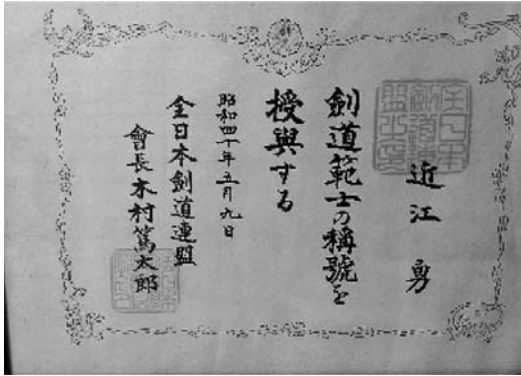 近江勇
剣道範士の稱號を
授與する
昭和四十年五月九日
全日本剣道連盟
會長木村篤太郎